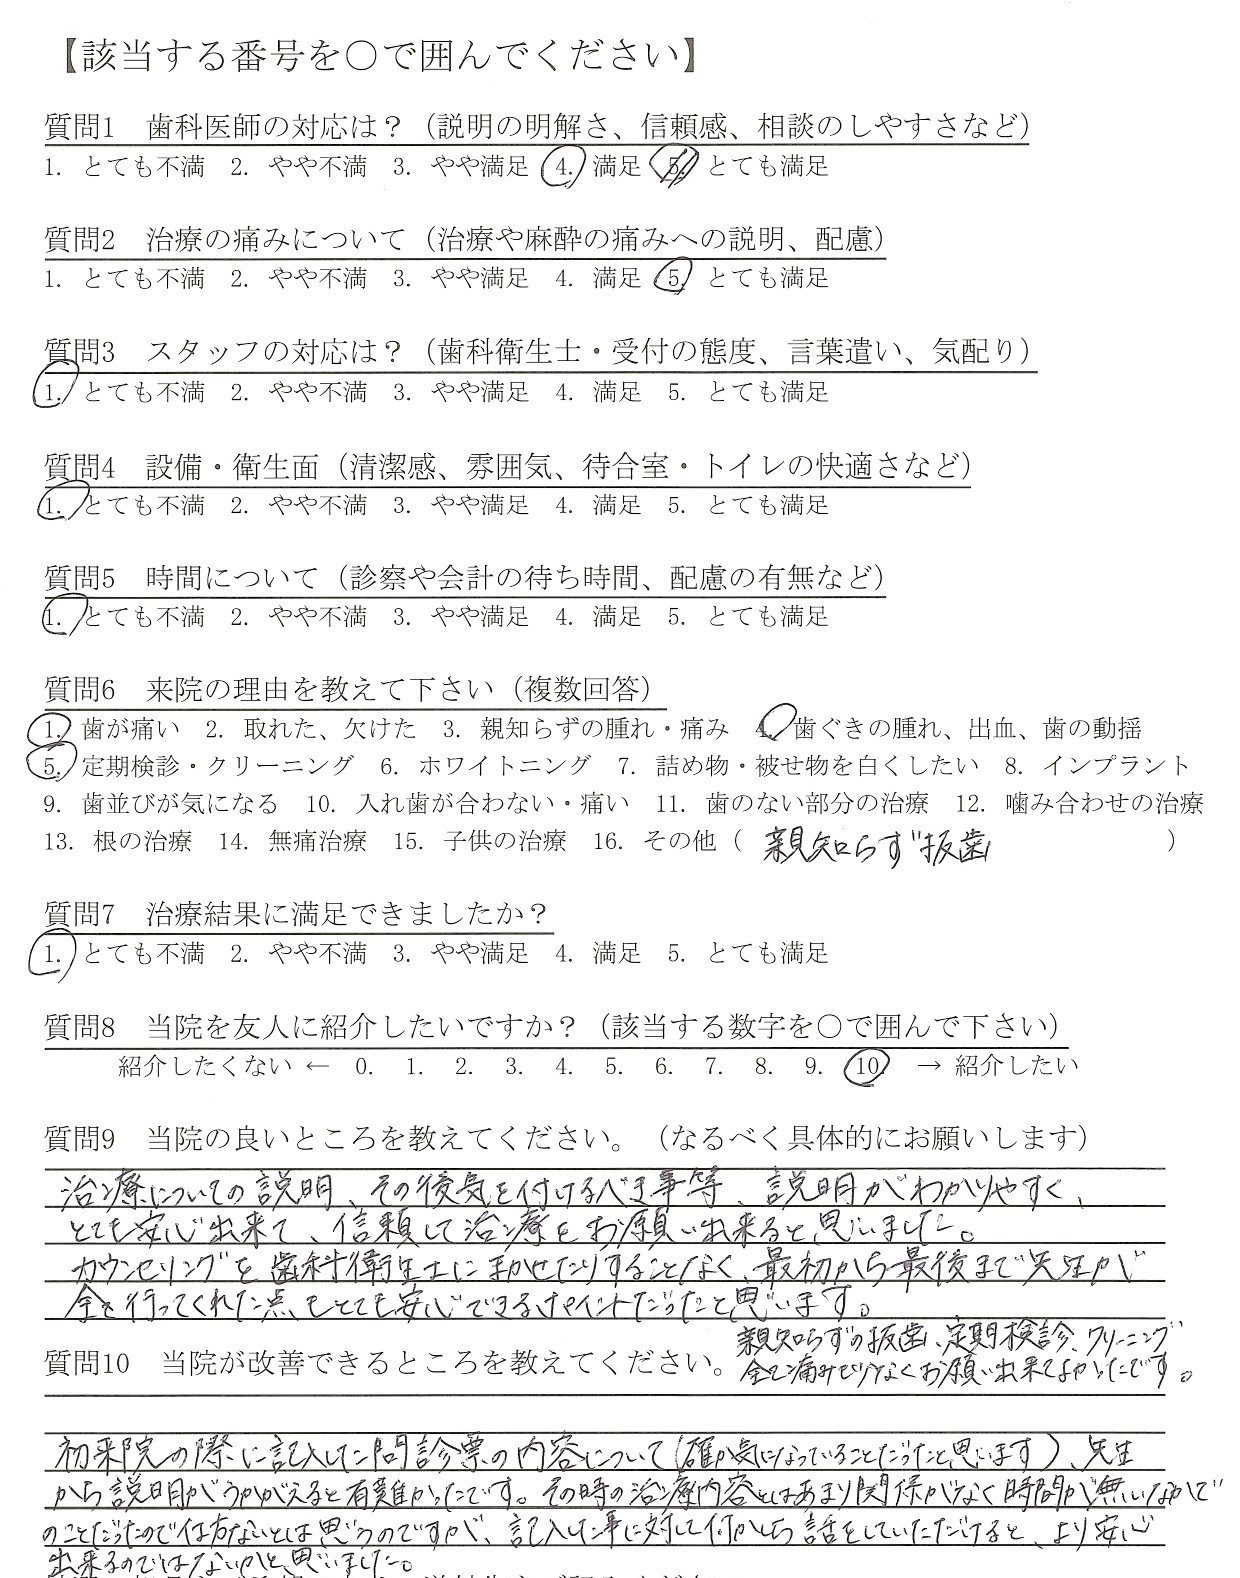 【該当する番号を○で囲んでください】
質問1 歯科医師の対応は？（説明の明解さ、信頼感、相談のしやすさなど）
1. とても不満 2. やや不満 3. やや満足 4. 満足 5. とても満足
質問2 治療の痛みについて（治療や麻酔の痛みへの説明、配慮）
1. とても不満 2. やや不満 3. やや満足 4. 満足 5. とても満足
質問3 スタッフの対応は？（歯科衛生士・受付の態度、言葉遣い、気配り）
1. とても不満 2. やや不満 3. やや満足 4. 満足 5. とても満足
質問4 設備・衛生面（清潔感、雰囲気、待合室・トイレの快適さなど）
1. とても不満 2. やや不満 3. やや満足 4. 満足 5. とても満足
質問5 時間について（診察や会計の待ち時間、配慮の有無など）
1. とても不満 2. やや不満 3. やや満足 4. 満足 5. とても満足
質問6 来院の理由を教えて下さい（複数回答）
1. 歯が痛い 2. 取れた、欠けた 3. 親知らずの腫れ・痛み 4. 歯ぐきの腫れ、出血、歯の動揺
5. 定期検診・クリーニング 6. ホワイトニング 7. 詰め物・被せ物を白くしたい 8. インプラント
9. 歯並びが気になる 10. 入れ歯が合わない・痛い 11. 歯のない部分の治療 12. 噛み合わせの治療
13. 根の治療 14. 無痛治療 15. 子供の治療 16. その他（ 親知らず抜歯 ）
質問7 治療結果に満足できましたか？
1. とても不満 2. やや不満 3. やや満足 4. 満足 5. とても満足
質問8 当院を友人に紹介したいですか？（該当する数字を○で囲んで下さい）
紹介したくない ← 0. 1. 2. 3. 4. 5. 6. 7. 8. 9. 10 → 紹介したい
質問9 当院の良いところを教えてください。（なるべく具体的にお願いします）
治療についての説明、その後気を付けるべき事等、説明がわかりやすく、
とても安心出来て、信頼して治療をお願い出来ると思いました。
カウンセリングを歯科衛生士にまかせたりすることなく、最初から最後まで先生が
全を行ってくれた点もとても安心できるポイントだったと思います。
親知らずの抜歯、定期検診、クリーニング
質問10 当院が改善できるところを教えてください。
全て痛みも少なくお願い出来てよかったです。
初来院の際に記入した問診票の内容について(確か気になっていることだったと思います)、先生
から説明がうかがえると有難かったです。その時の治療内容とはあまり関係がなく時間が無いなかで
のことだったので仕方ないとは思うのですが、記入した事に対して何かしら話をしていただけると、より安心
出来るのではないかと思いました。